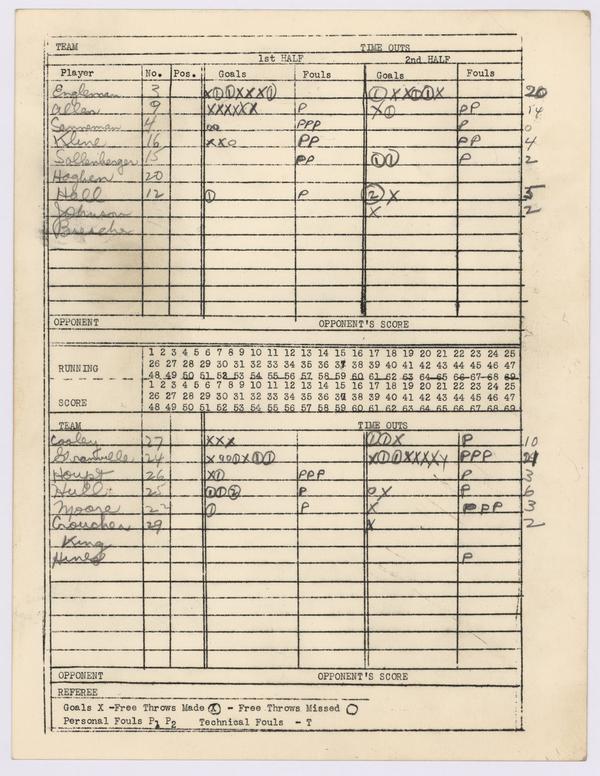 TEAM TIME OUTS
1st HALF 2nd HALF
Player No. Pos. Goals Fouls Goals Fouls
Engleman 3 X①①XXX① ①XX①①X 20
Allen 9 XXXXXX P X① PP 14
Senneman 4 oo PPP P 0
Kline 16 XXO PP PP 4
Sollenberger 15 PP ①① P 2
Hoghen 20
Hall 12 ① P ②X 5
Johnson X 2
OPPONENT OPPONENT'S SCORE
1 2 3 4 5 6 7 8 9 10 11 12 13 14 15 16 17 18 19 20 21 22 23 24 25
RUNNING 26 27 28 29 30 31 32 33 34 35 36 37 38 39 40 41 42 43 44 45 46 47
48 49 50 51 52 53 54 55 56 57 58 59 60 61 62 63 64 65 66 67 68 69
1 2 3 4 5 6 7 8 9 10 11 12 13 14 15 16 17 18 19 20 21 22 23 24 25
SCORE 26 27 28 29 30 31 32 33 34 35 36 37 38 39 40 41 42 43 44 45 46 47
48 49 50 51 52 53 54 55 56 57 58 59 60 61 62 63 64 65 66 67 68 69
TEAM TIME OUTS
Cooley 27 XXX ①①X P 10
24 Xoo①X①① X①①XXXX PPP 21
Houpt 26 X① PPP P 3
Hull 25 ①①② P OX P 6
Moore 24 ① P X PPP 3
Croucher 29 X 2
King
Hines P
OPPONENT OPPONENT'S SCORE
REFEREE
Goals X -Free Throws Made Ⓧ - Free Throws Missed ◯
Personal Fouls P1 P2 Technical Fouls - T